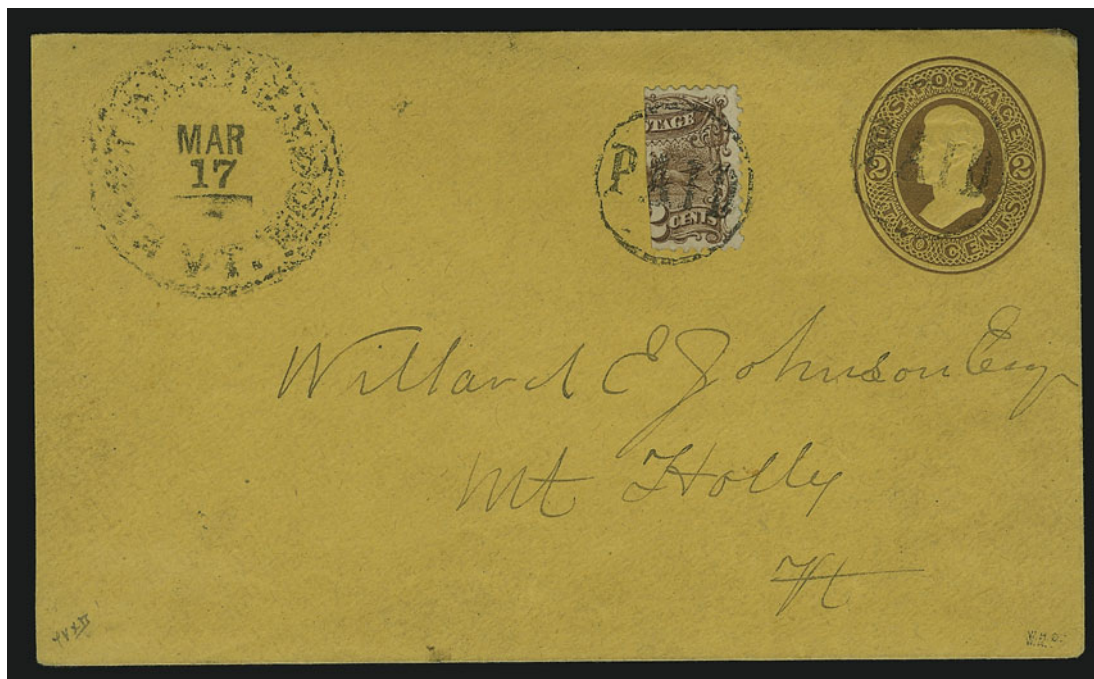 MAR
17
VT.
PAID
TAGE
2 CENTS
U.S. POSTAGE
2 2
TWO CENTS
Willard E Johnson Esq
Mt Holly
Vt